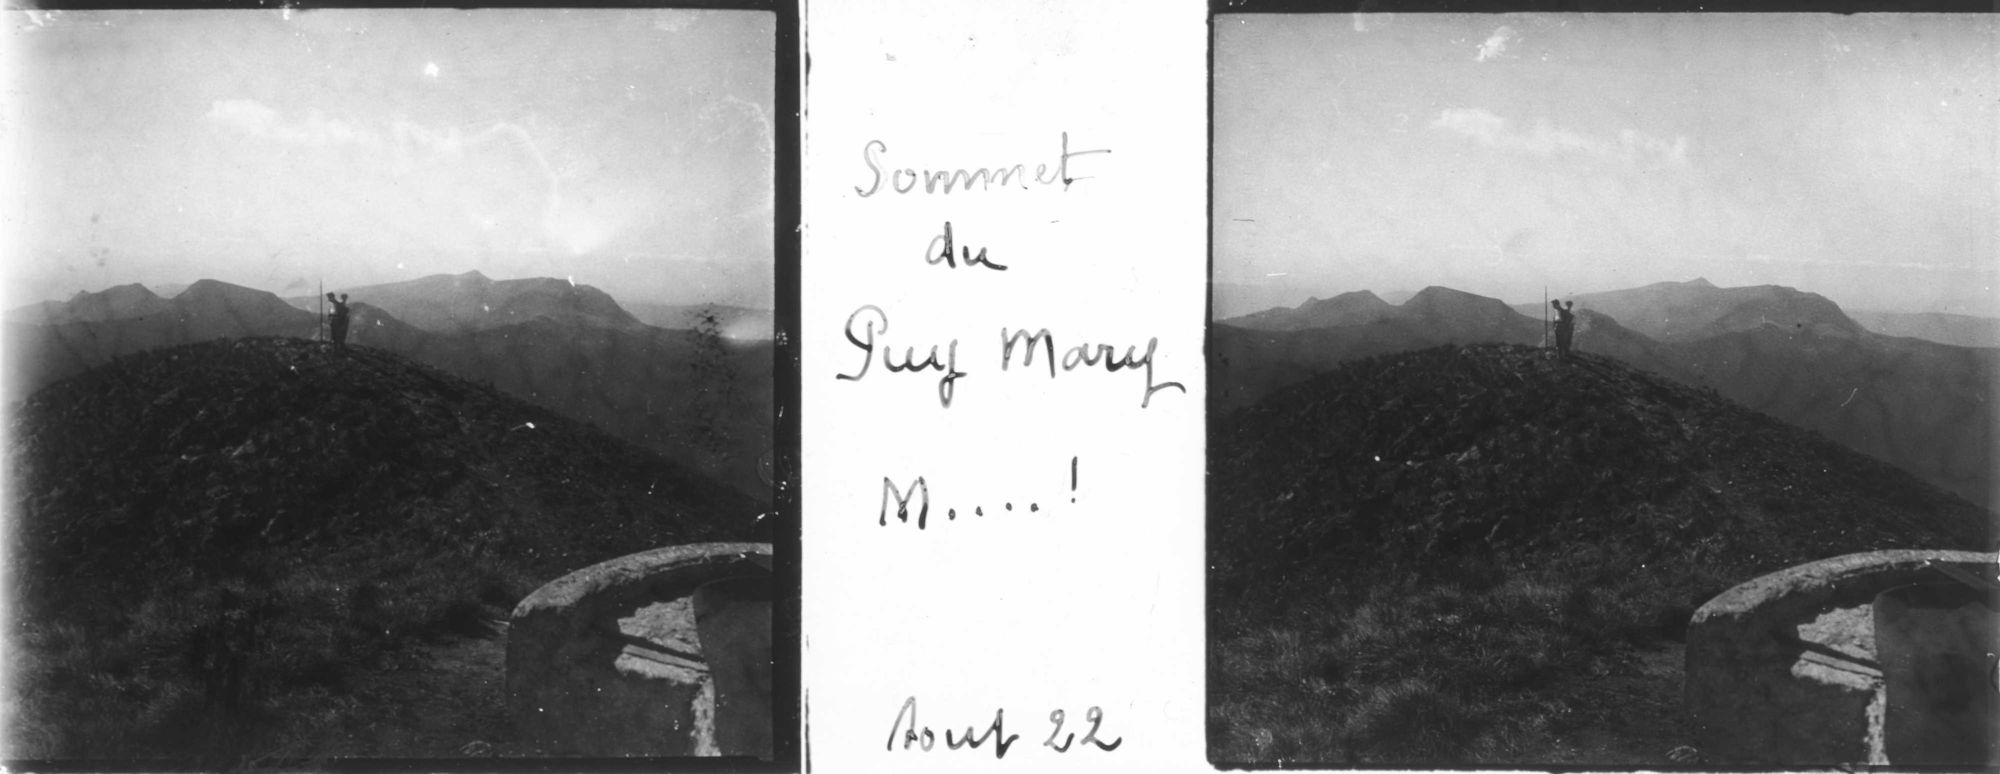 Sommet
du
Puy Mary
M....!
Aout 22